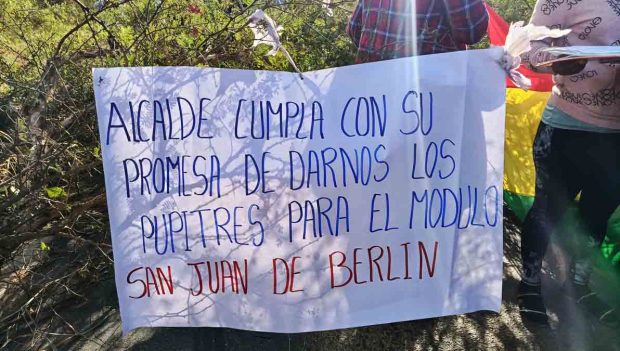 ALCALDE CUMPLA CON SU
PROMESA DE DARNOS LOS
PUPITRES PARA EL MODULO
SAN JUAN DE BERLIN